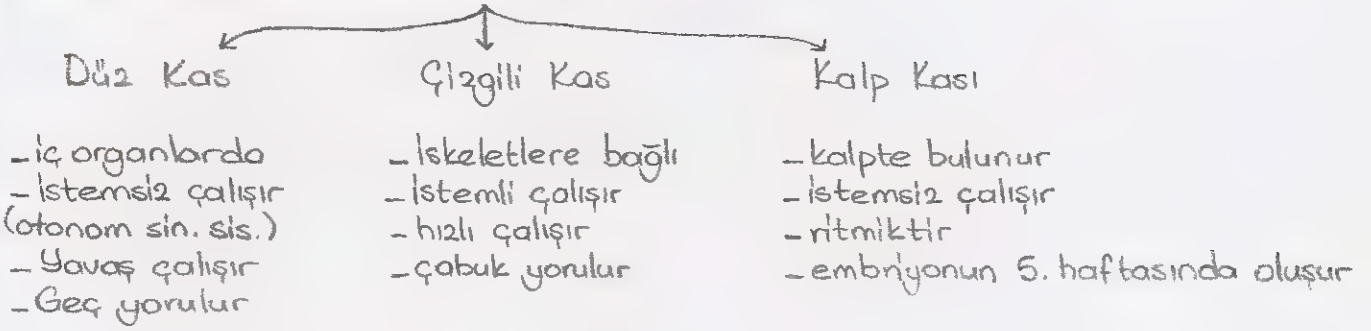 Düz Kas
- iç organlarda
- istemsiz çalışır
(otonom sin. sis.)
- Yavaş çalışır
- Geç yorulur
Çizgili Kas
- İskeletlere bağlı
- İstemli çalışır
- hızlı çalışır
- çabuk yorulur
Kalp Kası
- kalpte bulunur
- istemsiz çalışır
- ritmiktir
- embriyonun 5. haftasında oluşur